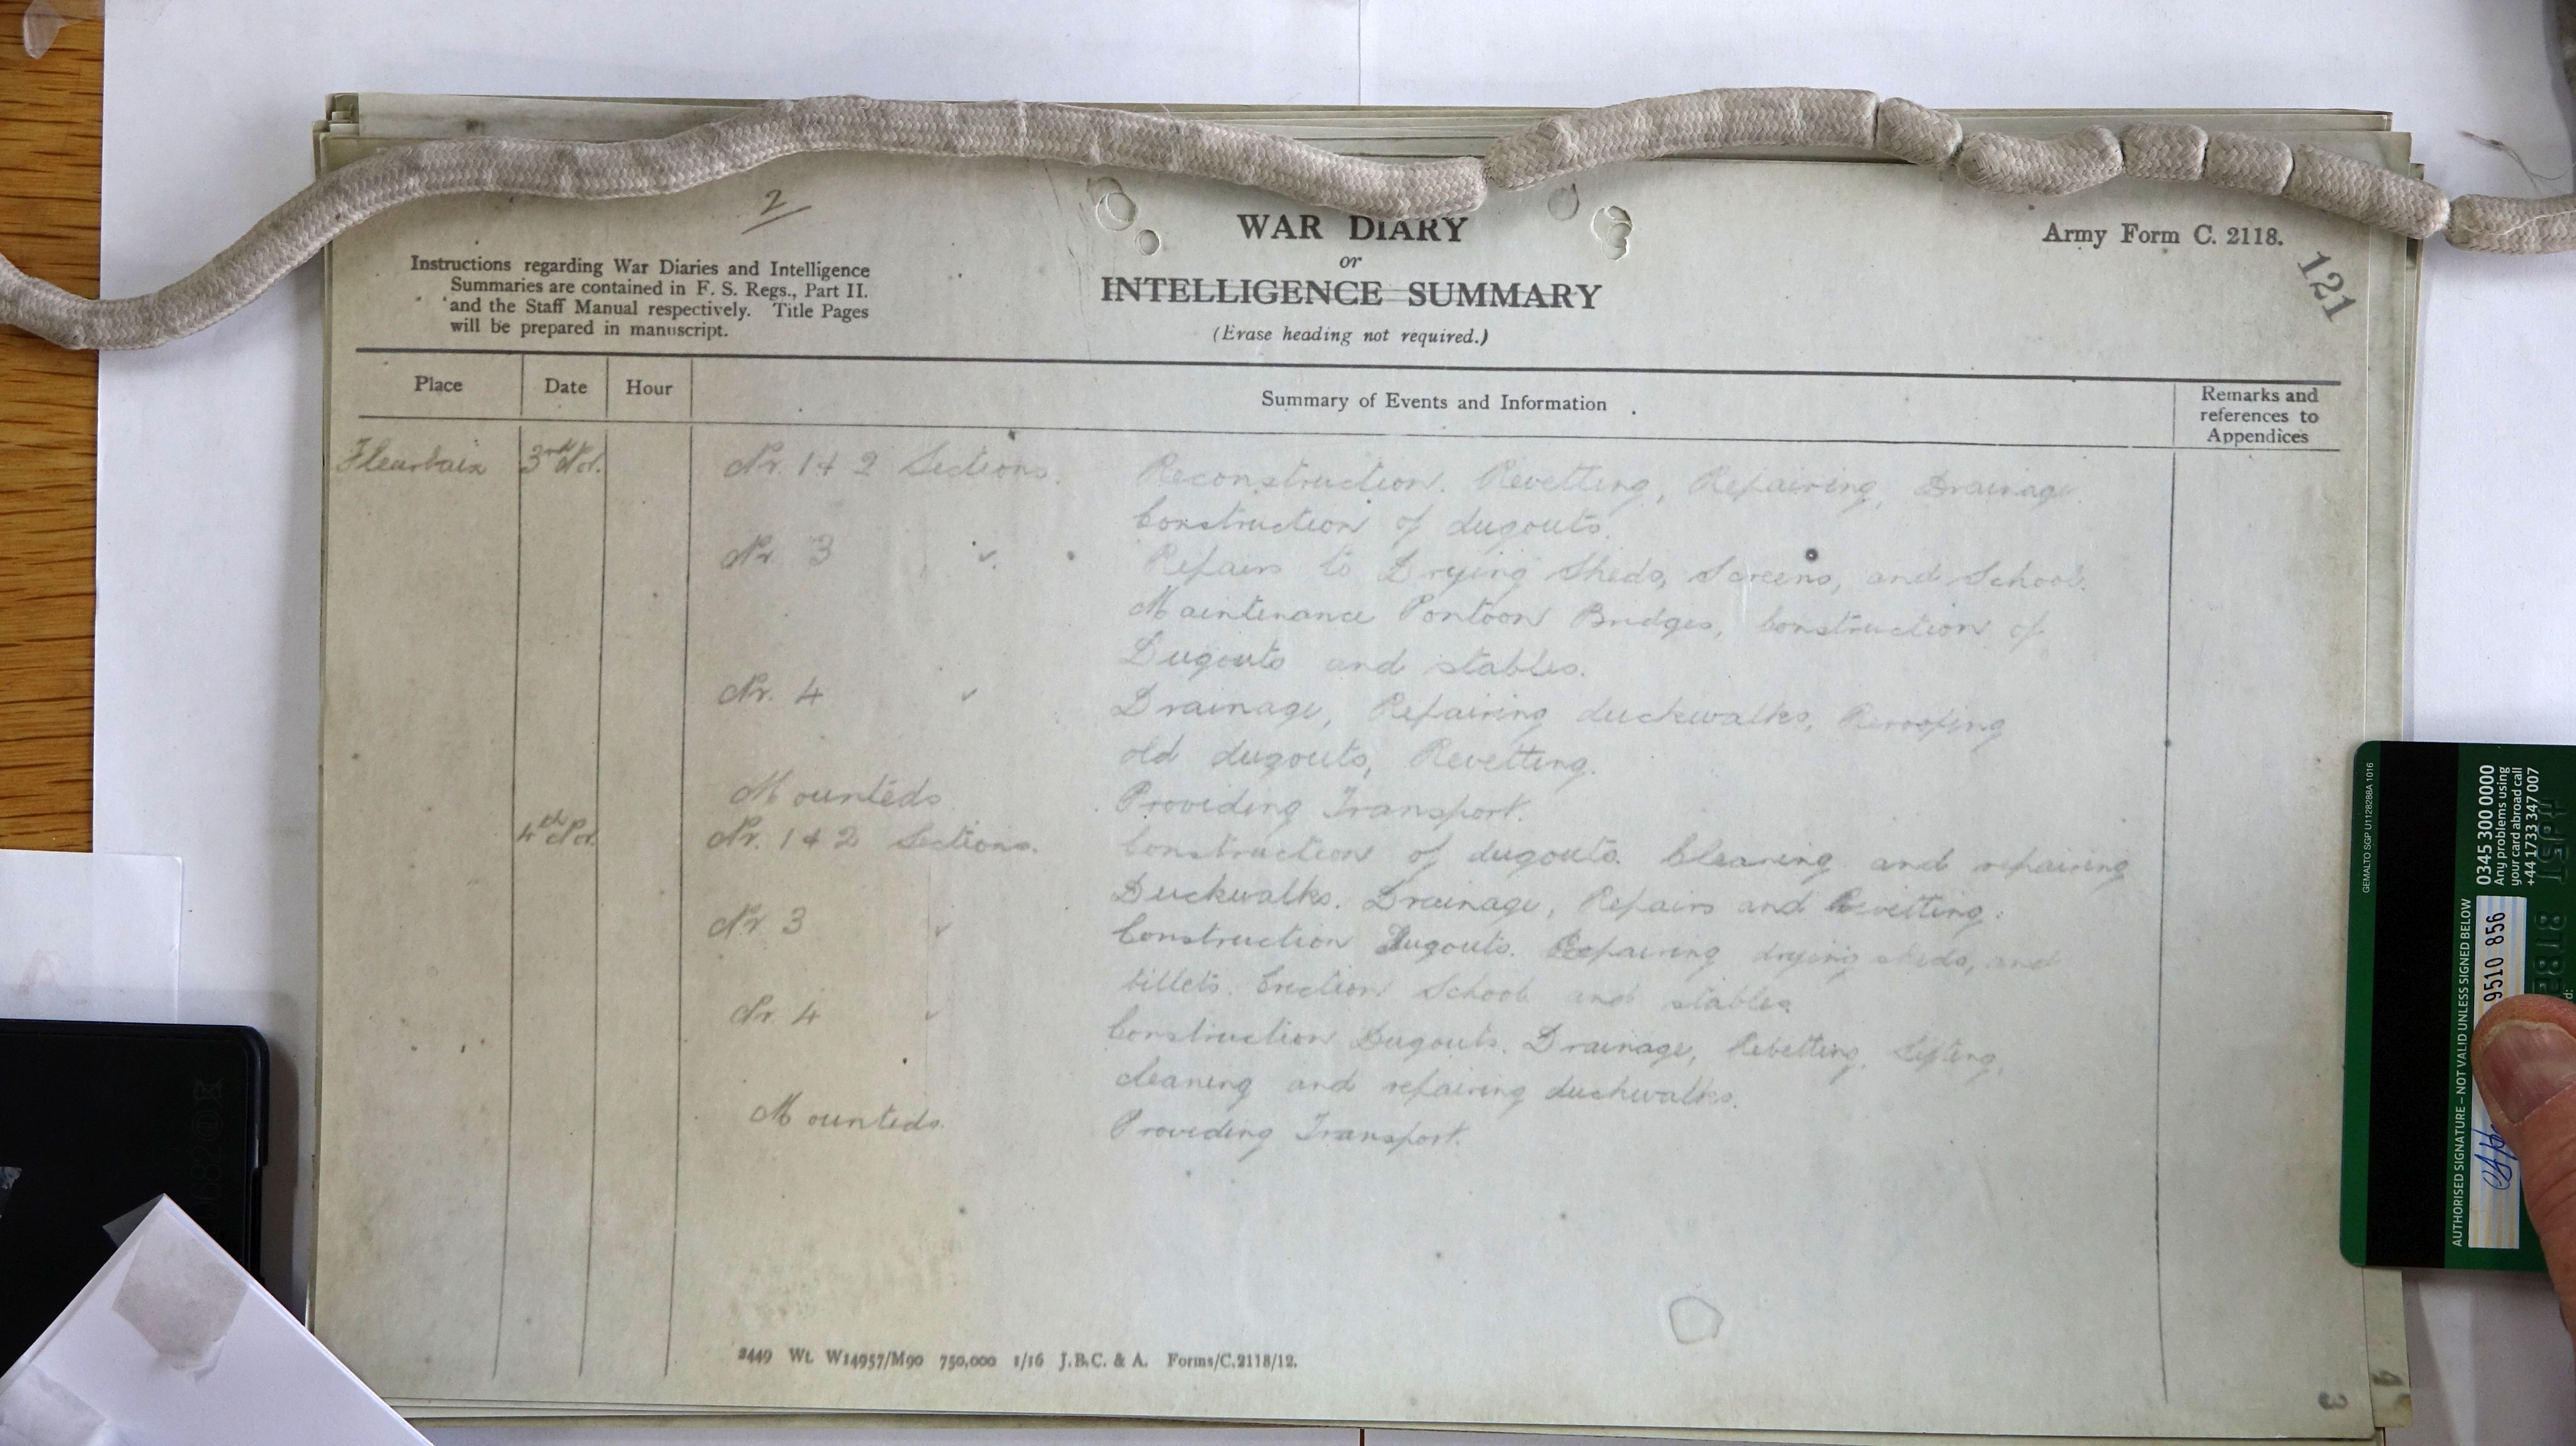 2
WAR DIARY
or
INTELLIGENCE SUMMARY
(Erase heading not required.)
Army Form C. 2118.
121
Instructions regarding War Diaries and Intelligence
Summaries are contained in F. S. Regs., Part II.
and the Staff Manual respectively. Title Pages
will be prepared in manuscript.
Place Date Hour Summary of Events and Information Remarks and
references to
Appendices
Fleurbaix 3rd Nr. 1 & 2 Sections. Reconstruction. Revetting, Repairing, Drainage.
Construction of dugouts.
Nr. 3 Repairs to Drying Sheds, Screens, and School.
Maintenance Pontoon Bridges, Construction of
Dugouts and stables.
Nr. 4 Drainage, Repairing duckwalks, Reroofing
old dugouts, Revetting.
Mounteds Providing Transport.
4th Nr. 1 & 2 Sections. Construction of dugouts. Cleaning and repairing
Duckwalks. Drainage, Repairs and Revetting.
Nr 3 Construction Dugouts. Repairing drying sheds, and
billets. Erection School and stables
Nr 4 Construction Dugouts. Drainage, Revetting. Lifting,
cleaning and repairing duckwalks.
Mounteds. Providing Transport.
2449 Wt. W14957/M90 750,000 1/16 J.B.C. & A. Forms/C.2118/12.
3
GEMALTO SGP U1128288A 1016
0345 300 0000
Any problems using
your card abroad call
+44 1733 347 007
AUTHORISED SIGNATURE – NOT VALID UNLESS SIGNED BELOW
9510 856